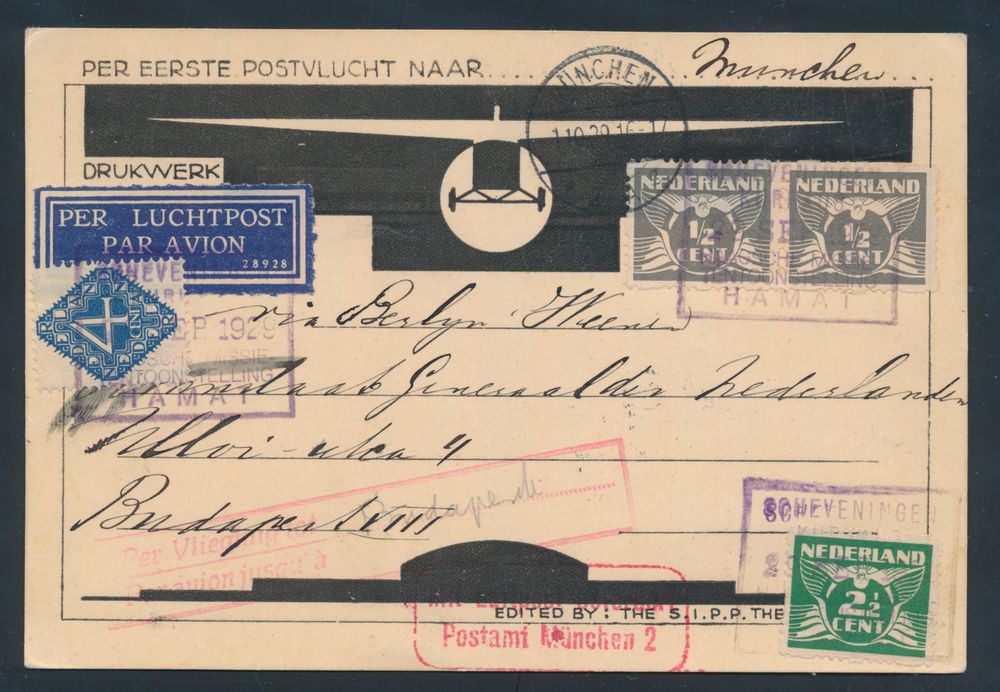 PER EERSTE POSTVLUCHT NAAR..... München...
MÜNCHEN
1.10.29.16-17
DRUKWERK
PER LUCHTPOST
PAR AVION
28928
NEDERLAND
1/2
CENT
NEDERLAND
1/2
CENT
SCHEVENINGEN
TENTOONSTELLING
HAMAT
4
CENT
SEP. 1929
MISSIE
TENTOONSTELLING
HAMAT
via Berlyn Weenen
Generaal der Nederlanden
Ulloi-utca 4
Budapest VIII
Budapest
Per Vliegtuig tot
Par avion jusqu'à
SCHEVENINGEN
NEDERLAND
2 1/2
CENT
EDITED BY: THE S.I.P.P. THE
Mit Luftpost befördert
Postamt München 2